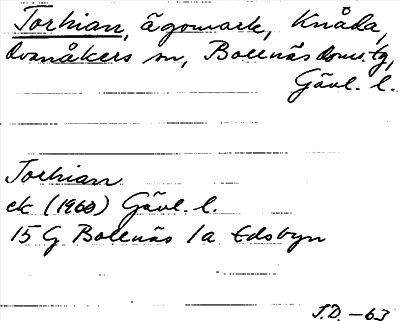 Torhian, ägomark, Knåda,
Ovanåkers sn, Bollnäs doms.tg,
Gävl. l.
Torhian
ek (1960) Gävl. l.
15 G Bollnäs 1a Edsbyn
J.D. -63